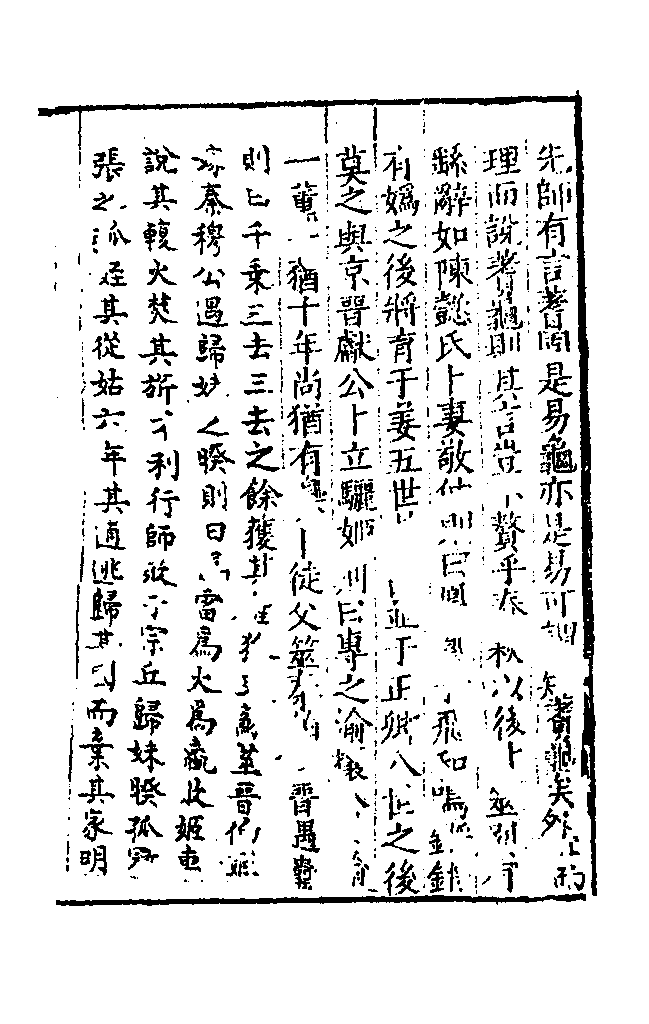 先師有言蓍固是易龜亦是易可謂知蓍龜矣外
理而說蓍龜則其言豈不贅乎春秋以後卜筮則有
繇辭如陳懿氏卜妻敬仲則曰鳳飛和鳴鏘
有媯之後將育于姜五世並于正卿八世之後
莫之與京晉獻公卜立驪姬則曰專之渝攘
一薰猶十年尚猶有卜徒父筮秦伯晉遇蠱
則曰千乘三去三去之餘獲其筮晉伯姬
秦穆公遇歸妹之睽則曰雷為火為嬴敗姬車
說其輹火焚其旂不利行師敗于宗丘歸妹睽孤
張之弧姪其從姑六年其逋逃歸其而棄其家明